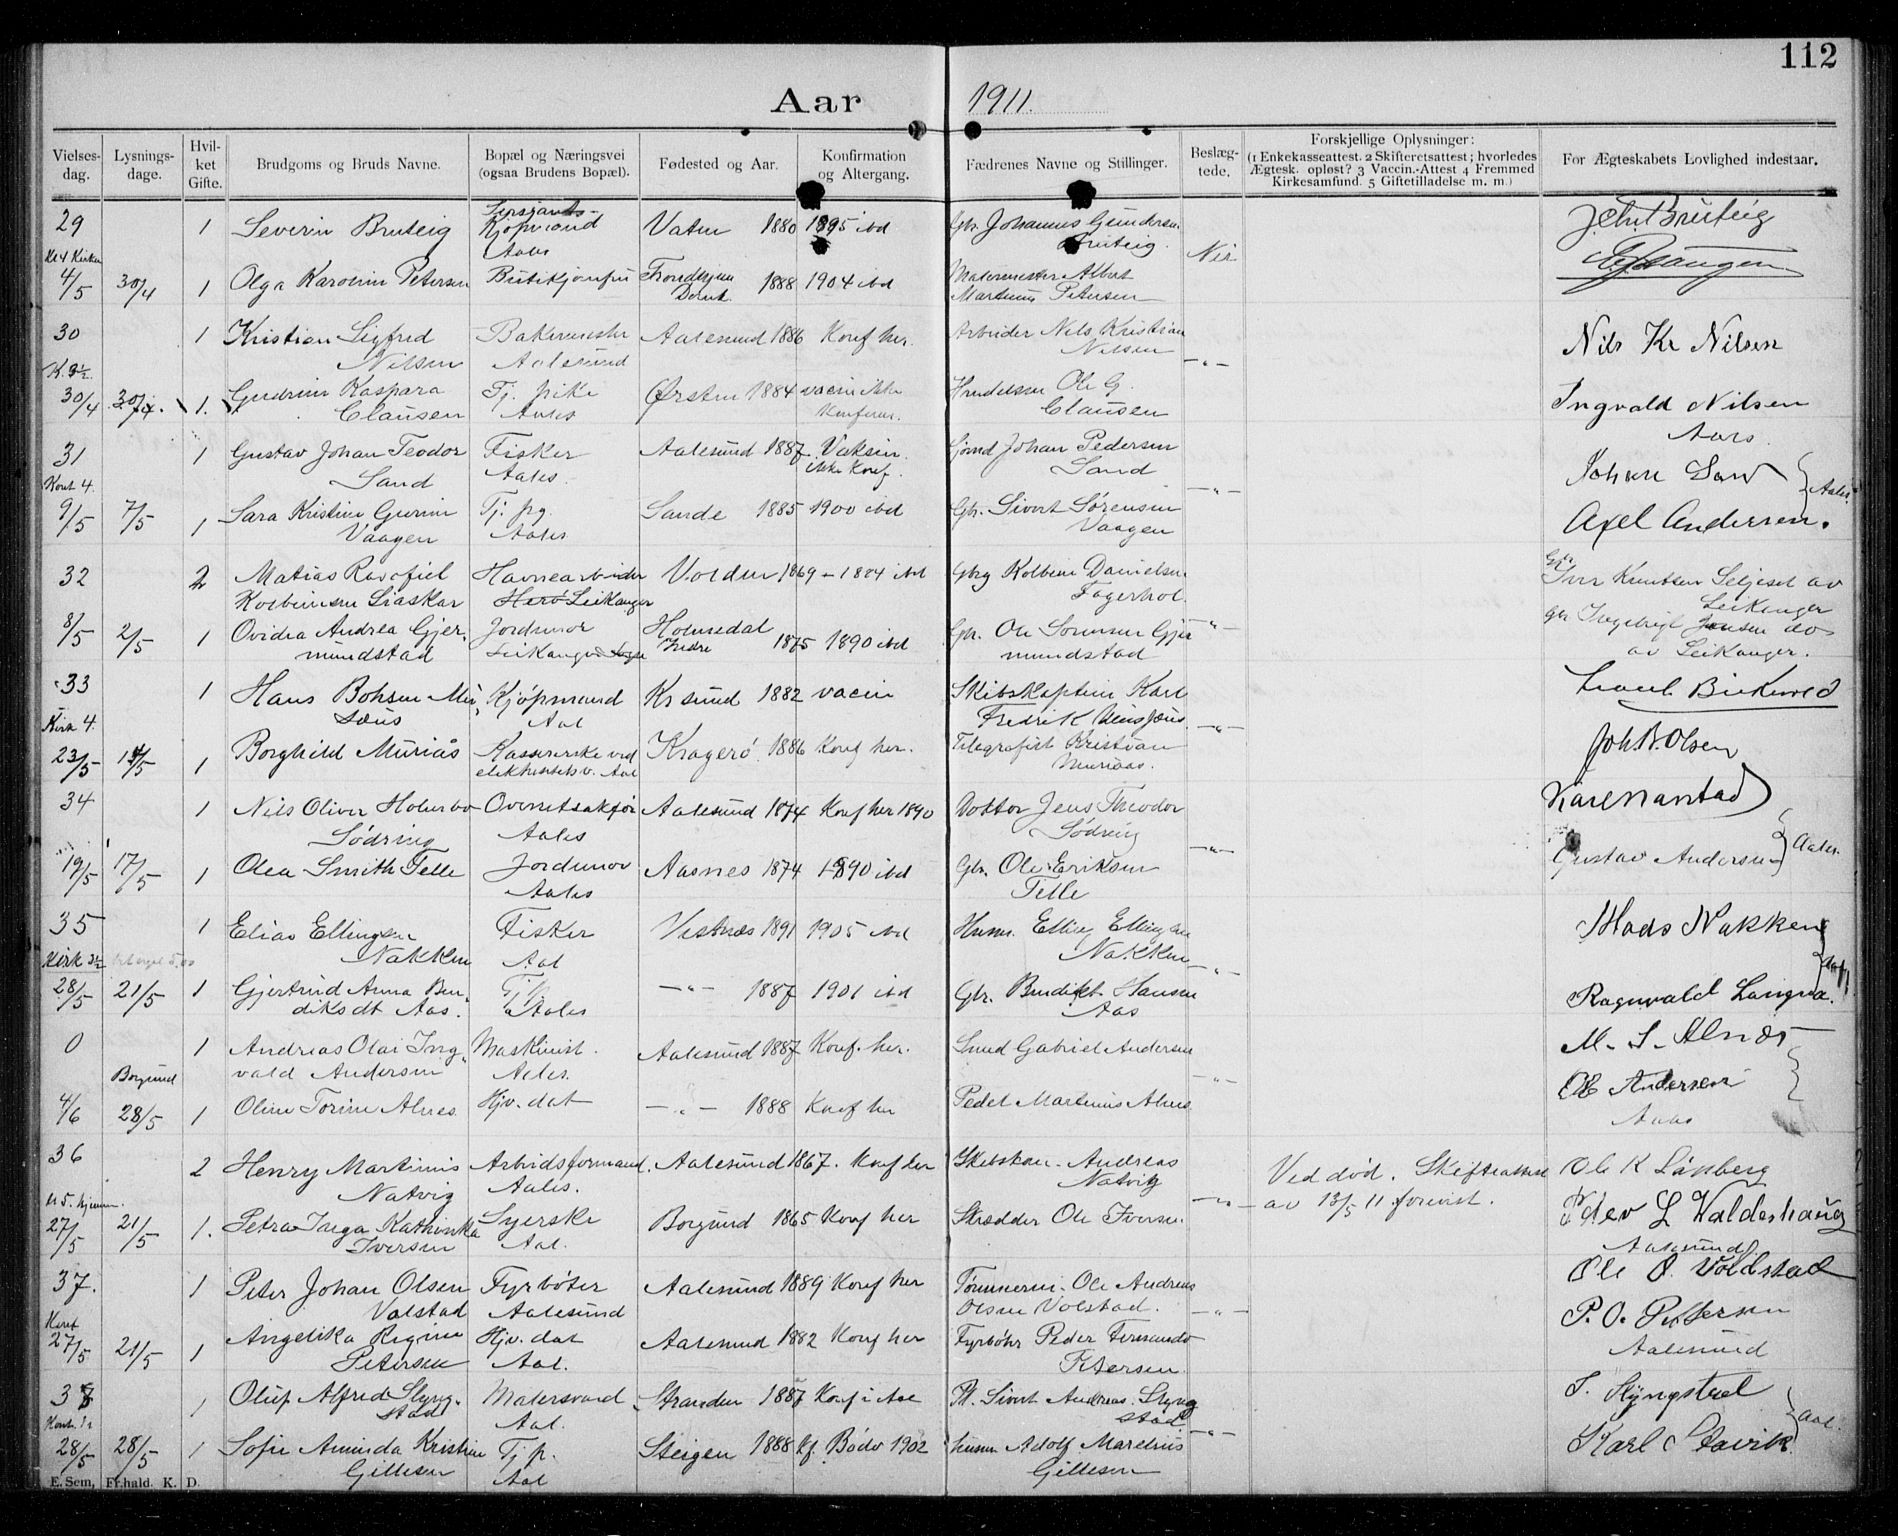 112
Aar 1911.
Vielses-dag. Lysnings-dage. Hvil-ket Gifte. Brudgoms og Bruds Navne. Bopæl og Næringsvei (ogsaa Brudens Bopæl). Fødested og Aar. Konfirmation og Altergang. Fædrenes Navne og Stillinger. Beslæg-tede. Forskjellige Oplysninger: (1 Enkekasseattest. 2 Skifteretsattest; hvorledes Ægtesk. opløst? 3 Vaccin.-Attest 4 Fremmed Kirkesamfund. 5 Giftetilladelse m. m.) For Ægteskabets Lovlighed indestaar.
29 1 Severin Bruteig Kjøpmand Aales Vatne 1880 1895 ibd Gbr. Johannes Gundersen Bruteig. Nei Joh. Bruteig
Kl 4 Kirken
4/5 30/4 1 Olga Karoline Petersen Trondhjem Domk. 1888 1904 ibd Malermester Albert Martinus Petersen
30 1 Kristian Sigfred Nilsen Bakermester Aalesund Aalesund 1886 Konf her. Arbeider Nils Kristian Nilsen -"- Nils Kr Nilsen
K. 3½.
30/4 30/4 1. Gudrun Kaspara Clausen Tj. pike Aales Ørsten 1884 vacin ikke Konferm. Ole G. Clausen Ingvald Nilsen
Aales.
31 1 Gustav Johan Teodor Sand Fisker Aales. Aalesund 1887 Vaksin. ikke Konf. Johan Pedersen Sand -"- Johan San
Kont 4.
9/5 7/5 1 Sara Kristine Gurine Vaagen Tj. pg. Aales Sande 1885 1900 ibd Gbr. Sivert Sørensen Vaagen Axel Andersen. Aales
32 2 Matias Rasofiel Kolbeinsen Liaskar Havnearbeider Herö Leikanger Volden 1869 - 1884 ibd Gbrg Kolbein Danielsen Fagerhol. -"- Iver Knutsen Seljeset av Leikanger
8/5 2/5 1 Ovidia Andrea Gjermundstad Jordmor Holmedal Indre 1875 1890 ibd Gbr. Ole Sørensen Gjermundstad gbr Ingebrigt Jensen do av Leikanger.
33 1 Hans Bohsen Kjøpmand Aal Kr sund 1882 vacin Skibskaptein Karl Fredrik -"-
Kirk 4.
23/5 14/5 1 Borghild Muriås Kasserske ved elektrisitetsv. Aal Kragerö 1886 Konf her. Telegrafist Kristian Muriaas. Joh. N. Olsen
34 1 Nils Oliver Holmboe Södring Overretssakfør Aales Aalesund 1874 Konf her 1890 Doktor Jens Theodor Södring -"-
19/5 17/5 1 Olea Smith Telle Jordmor Aales Aasnes 1874 1890 ibd Gbr. Ole Eriksen Telle Gustav Andersen Aales.
35 1 Elias Ellingsen Nakken Fisker Aal Vestnes 1891 1905 ibd Husm. Elling Ellingsen Nakken -"- Mads Nakken
Kirk 3½
28/5 21/5 1 Gjertrud Anna Bendiksdt Aas. Tj. p. Aales -"- 1887 1901 ibd Gbr. Bendikt Hansen Aas Ragnvald Langva.
0 1 Andreas Olai Ingvald Andersen Maskinist. Aales. Aalesund 1887 Konf. her. Smed Gabriel Andersen -"- M. S. Alnæs
Borgund
4/6 28/5 1 Oline Torine Alnes Hjv. dat -"- 1888 Konf her Pedel Martinus Alnes Ole Andersen
Aales
36 2 Henry Martinius Natvig Arbeidsformand. Aales. Aalesund 1867. Konf her Skibskon. Andreas Natvig -"- Ved död. Skifteattest av 13/5 11 forevist. Ole K Lönberg
kl 5. hjemme.
27/5 21/5 1. Petra Inga Kathinka Iversen Syerske Aal. Borgund 1865 Konf her Skrædder Ole Iversen. Peder L Valdeshaug
Aalesund
37. 1 Peter Johan Olsen Valstad Fyrböter Aalesund Aalesund 1889 Konf her Tømmerm. Ole Andreas Olsen Volstad. -"- Ole O. Voldstad
Kont
27/5 21/5 1 Angelika Regine Petersen Hjv. dat Aal. Aalesund 1882 Konf her Fyrböter Peder Fernando Petersen. P. O. Pettersen
Aalesund
38 1 Oluf Alfred Slyngstad Malersvend Aal. Stranden 1887 Konf i Aal Sivert Andreas Slyngstad -"- S. Slyngstad
Kont.
28/5 28/5 1 Sofie Aminda Kristine Gillesen Tj p. Aal Steigen 1888 kf. Bodø 1902 husm Adolf Marelius Gillesen Karl Slavik Aal
E. Sem, Fr.hald. K. D.